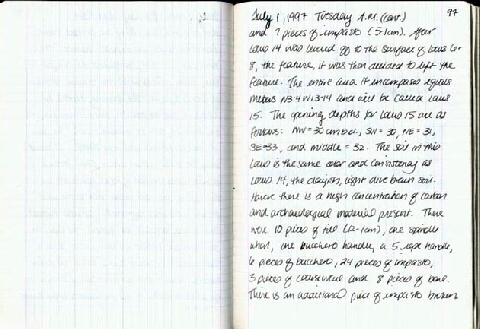 July 1, 1997 Tuesday A.M. (cont.) 97
and 7 pieces of impasto (5-1cm). After
Locus 14 was leveled off to the surface of Locus
8, the feature, it was then decided to the
feature. The entire area it encompasses equals
meters and will be called Locus
15. The opening depths for Locus 15 are as
follows: NW=30 cm B.D., SW=30, NE=31,
SE=33, and middle=32. The soil in this
Locus is the same color and consistency as
Locus 14, the light olive brown soil.
there is a high concentration of carbon
and archaeological material present. There
were 10 pieces of tile (12-1cm), one spindle
whorl, one bucchero handle, a handle,
6 pieces of bucchero, 24 pieces of impasto,
3 pieces of coarseware and 8 pieces of bone.
There is an additional piece of impasto